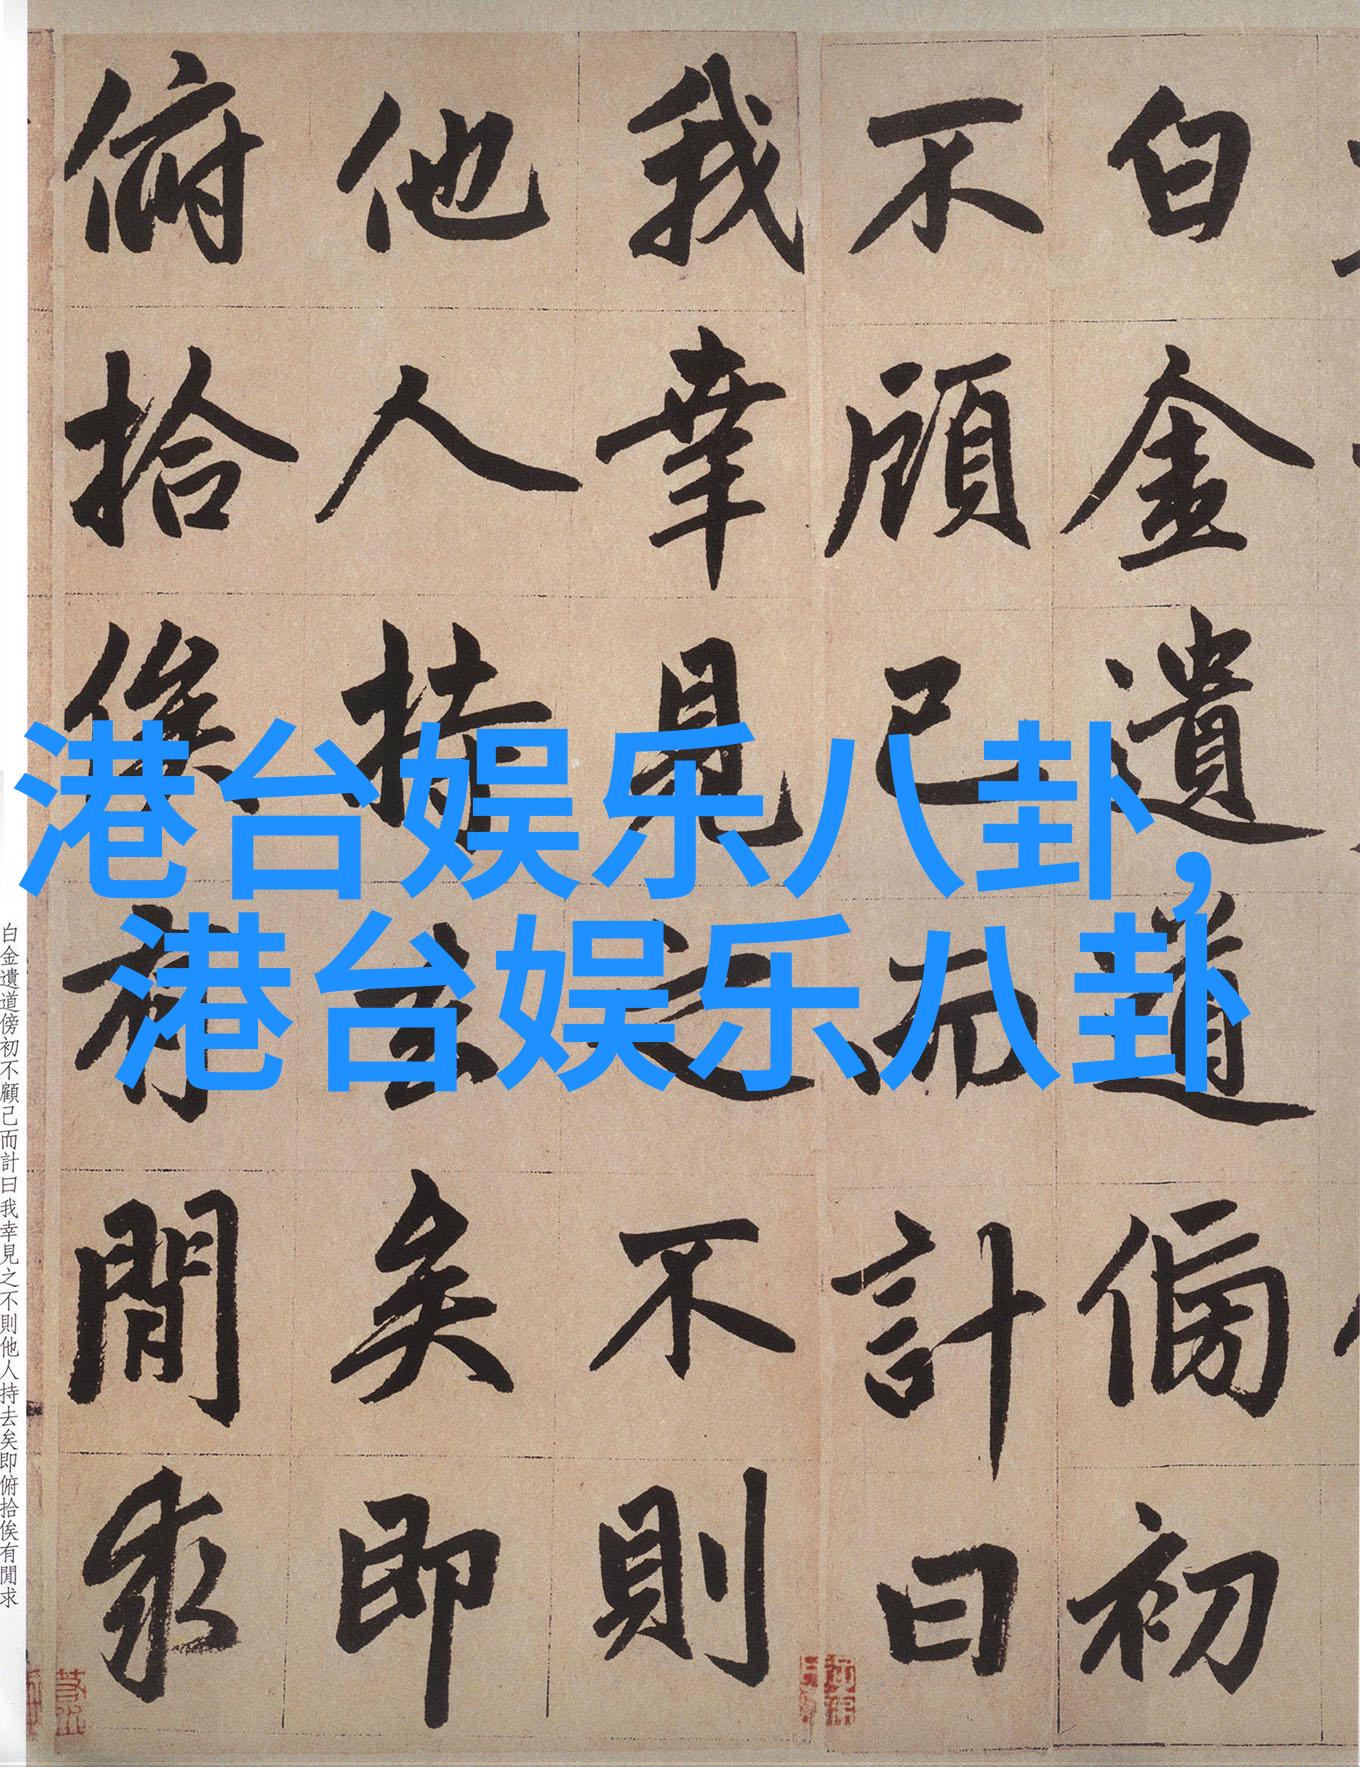 白金遺道傍初
不顧己而計曰
我幸見之不則
他人持去矣即
俯拾俟有閒求
港台娱乐八卦,
港台娱乐八卦
白金遺道傍初不顧己而計曰我幸見之不則他人持去矣即俯拾俟有閒求